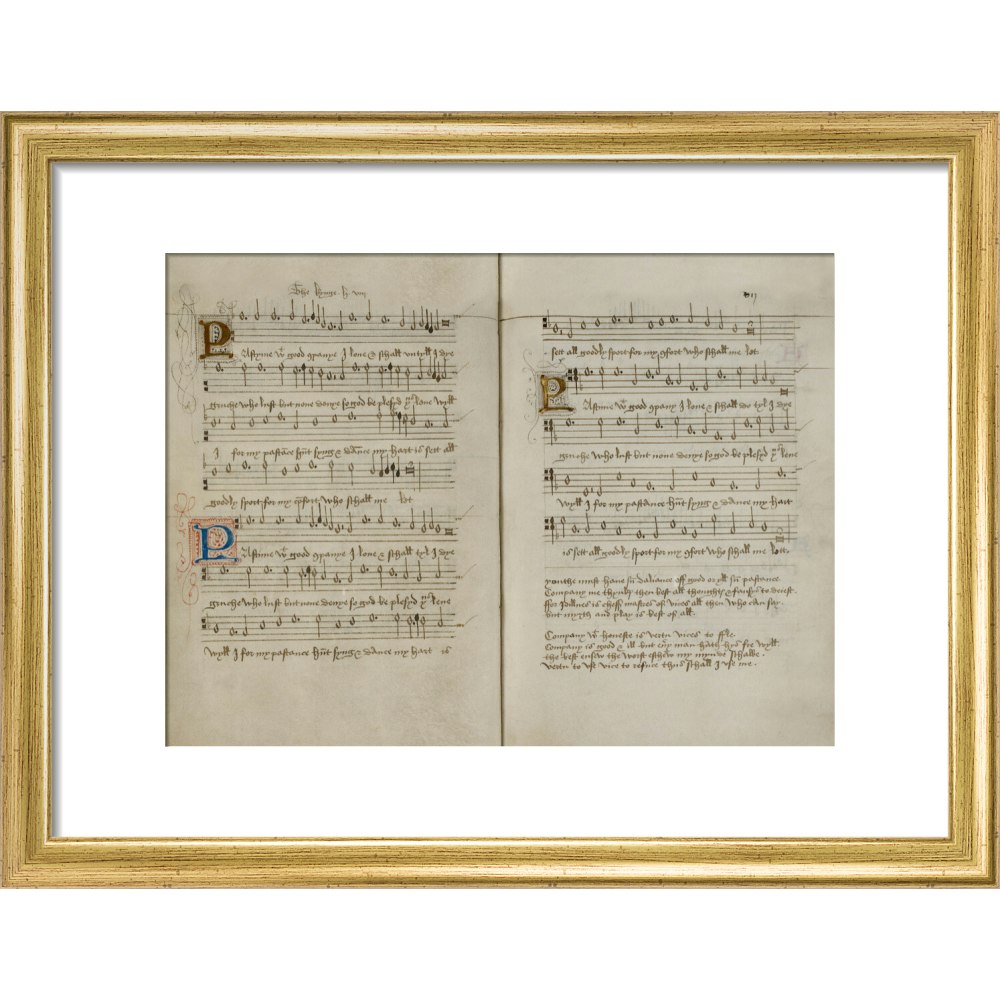 The kynge .h. viii
PAstyme wt good cpanye I love & schall untyll I dye
gruche who lust but none denye so god be plesyd yus leve wyll
I for my pastāce hūt syng & dance my hart is sett all
goodly sport for my cōfort who schall me let
PAstime wt good cpanye I love & schall tyl I dye
gruche who lust but none denye so god be plesyd yus leve
wyll I for my pastance hūt syng & dance my hart is
sett all goodly sport for my cfort who schall me let
PAstime wt good cpanye I love & schall do tyl I dye
gruche who lust but none denye so god be plesyd yus leve
wyll I for my pastance hūt syng & dance my hart
is sett all goodly sport for my cfort who schall me let.
youthe must have sū daliance off good or yll sū pastance.
Company me thynks then best all thoughts & fansys to deiest
ffor Idillnes is cheff mastres of vices all then who can say.
but myrth and play is best of all.
Company wt honeste is vertu vices to ffle.
Company is good & ill but evy man hath hys fre wyll.
the best ensew the worst eschew my mynde schalbe.
vertu to use vice to refuce thus schall I use me.